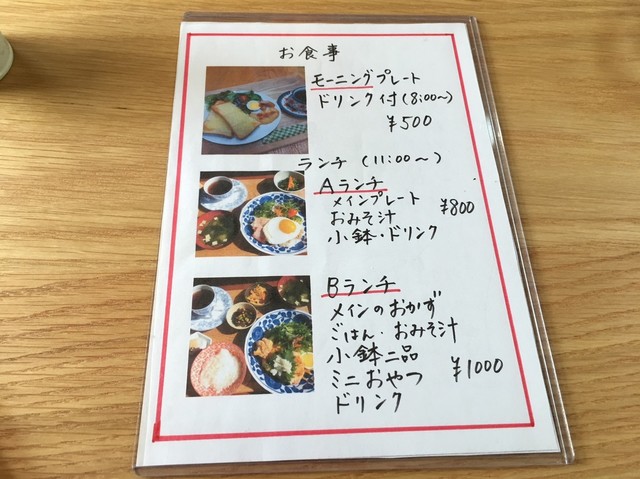 お食事
モーニングプレート
ドリンク付(8:00〜)
¥500
ランチ(11:00〜)
Aランチ
メインプレート
おみそ汁
小鉢・ドリンク
¥800
Bランチ
メインのおかず
ごはん・おみそ汁
小鉢二品
ミニおやつ
ドリンク
¥1000